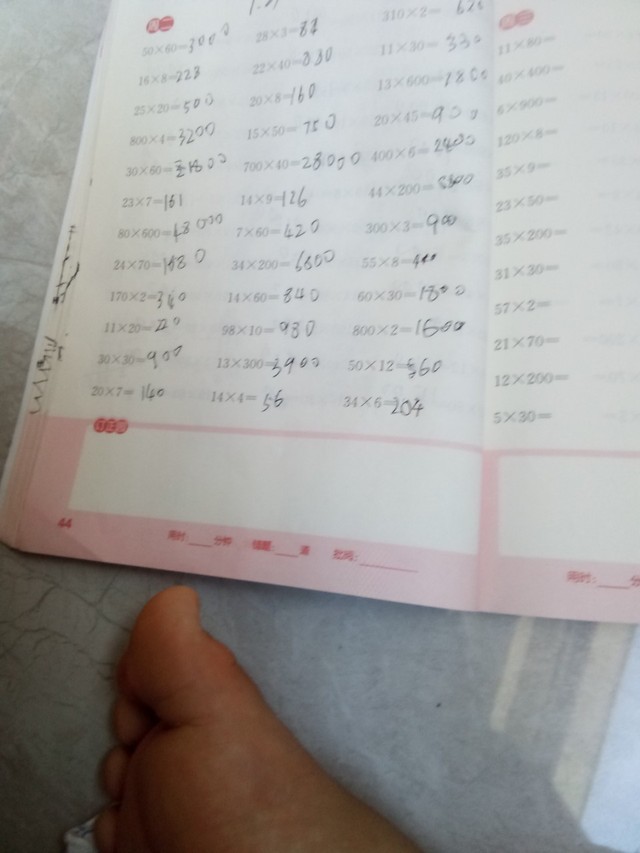 周二
50×60=3000 28×3=84 310×2=620
16×8=128 22×40=880 11×30=330
25×20=500 20×8=160 13×600=7800
800×4=3200 15×50=750 20×45=900
30×60=1800 700×40=28000 400×6=2400
23×7=161 14×9=126 44×200=8800
80×600=48000 7×60=420 300×3=900
24×70=1680 34×200=6800 55×8=440
170×2=340 14×60=840 60×30=1800
11×20=220 98×10=980 800×2=1600
30×30=900 13×300=3900 50×12=560
20×7=140 14×4=56 34×6=204
订正栏
44
用时:____分钟 错题:____道 批阅:________
周三
11×80=
40×400=
6×900=
120×8=
35×9=
23×50=
35×200=
31×30=
57×2=
21×70=
12×200=
5×30=
用时:____分